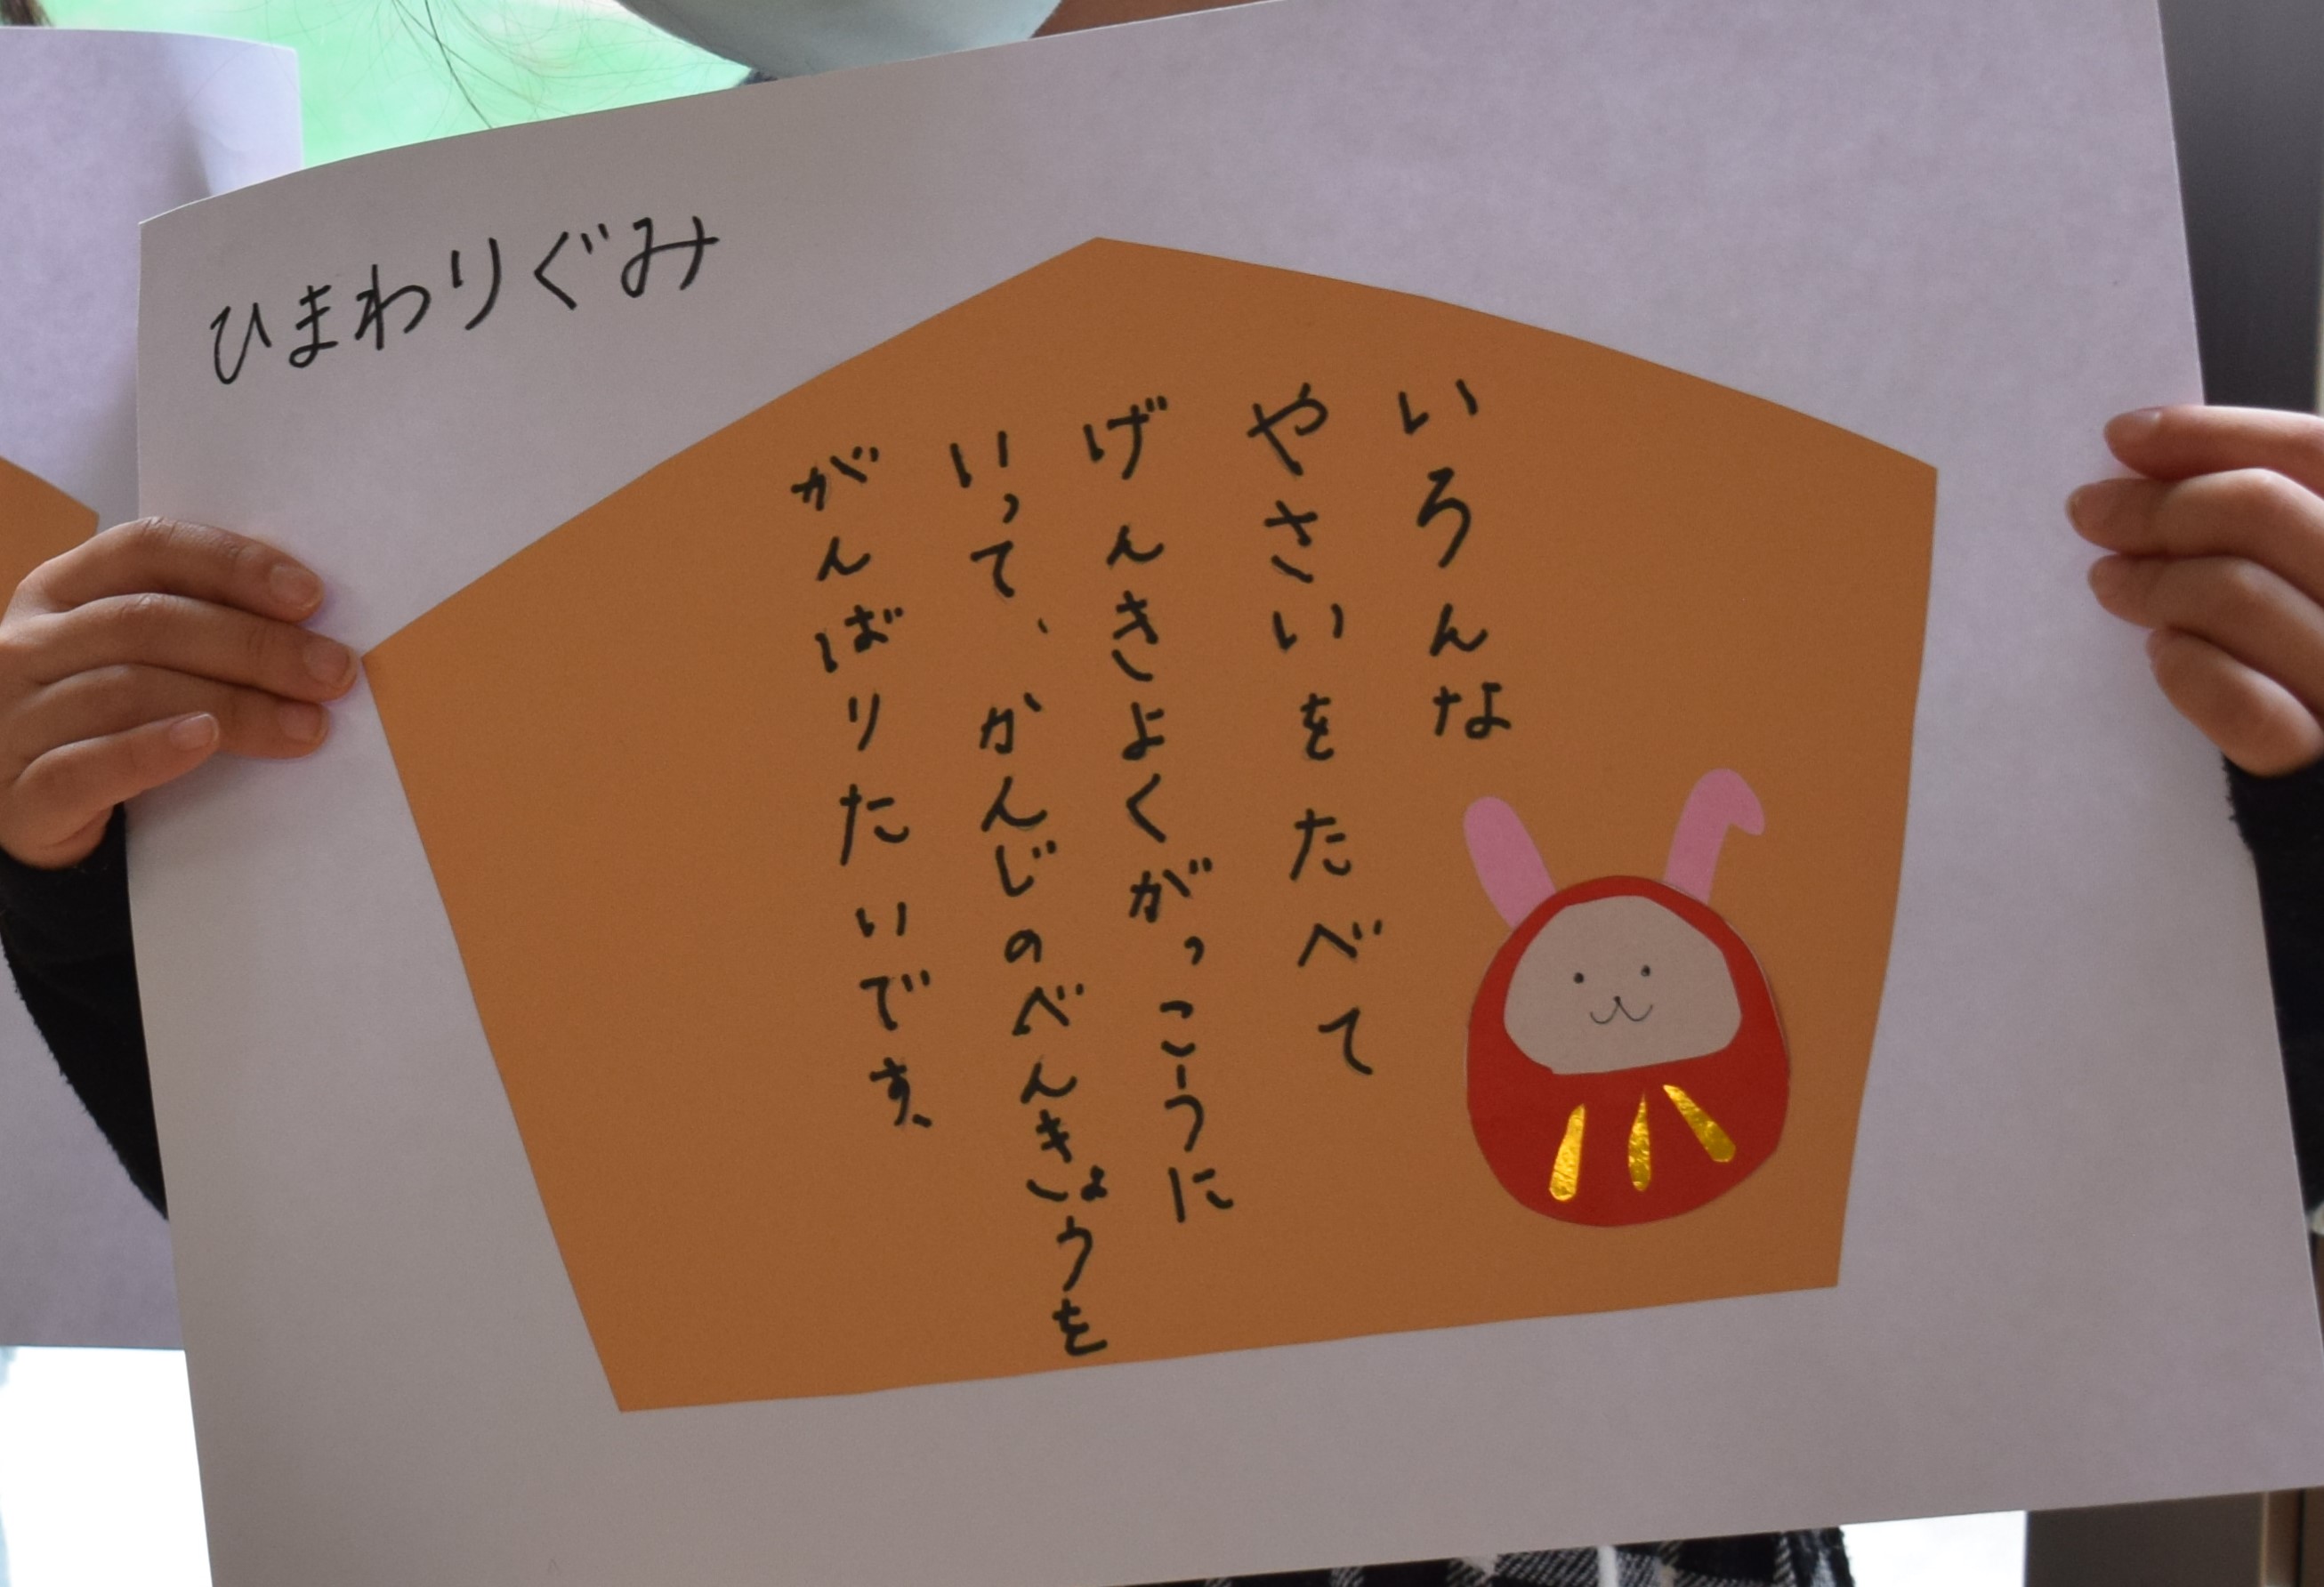 ひまわりぐみ
いろんな
やさいをたべて
げんきよくがっこうに
いって、かんじのべんきょうを
がんばりたいです、